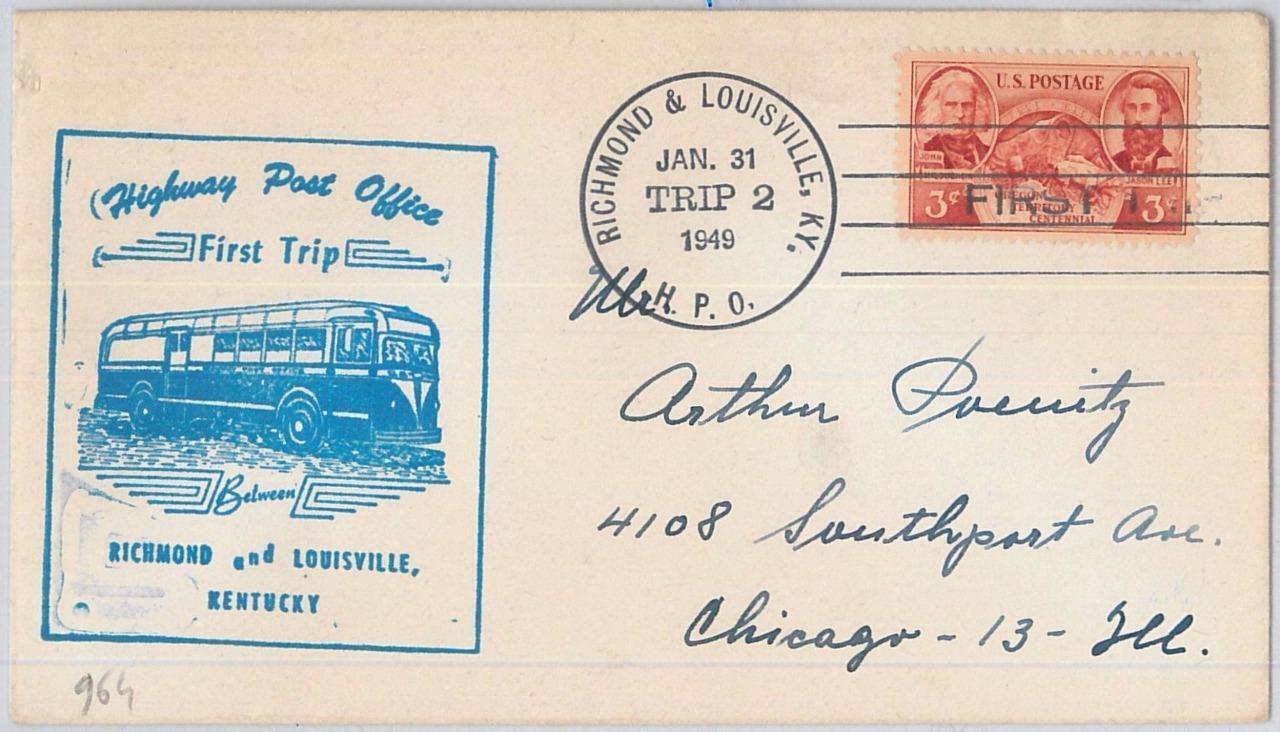 Highway Post Office
First Trip
Between
RICHMOND and LOUISVILLE,
KENTUCKY
964
RICHMOND & LOUISVILLE, KY.
JAN. 31
TRIP 2
1949
H. P. O.
U.S. POSTAGE
JOHN
JASON LEE
3¢ 3¢
TERRITORY
CENTENNIAL
FIRST
Mr.
Arthur Poenitz
4108 Southport Ave.
Chicago - 13 - Ill.